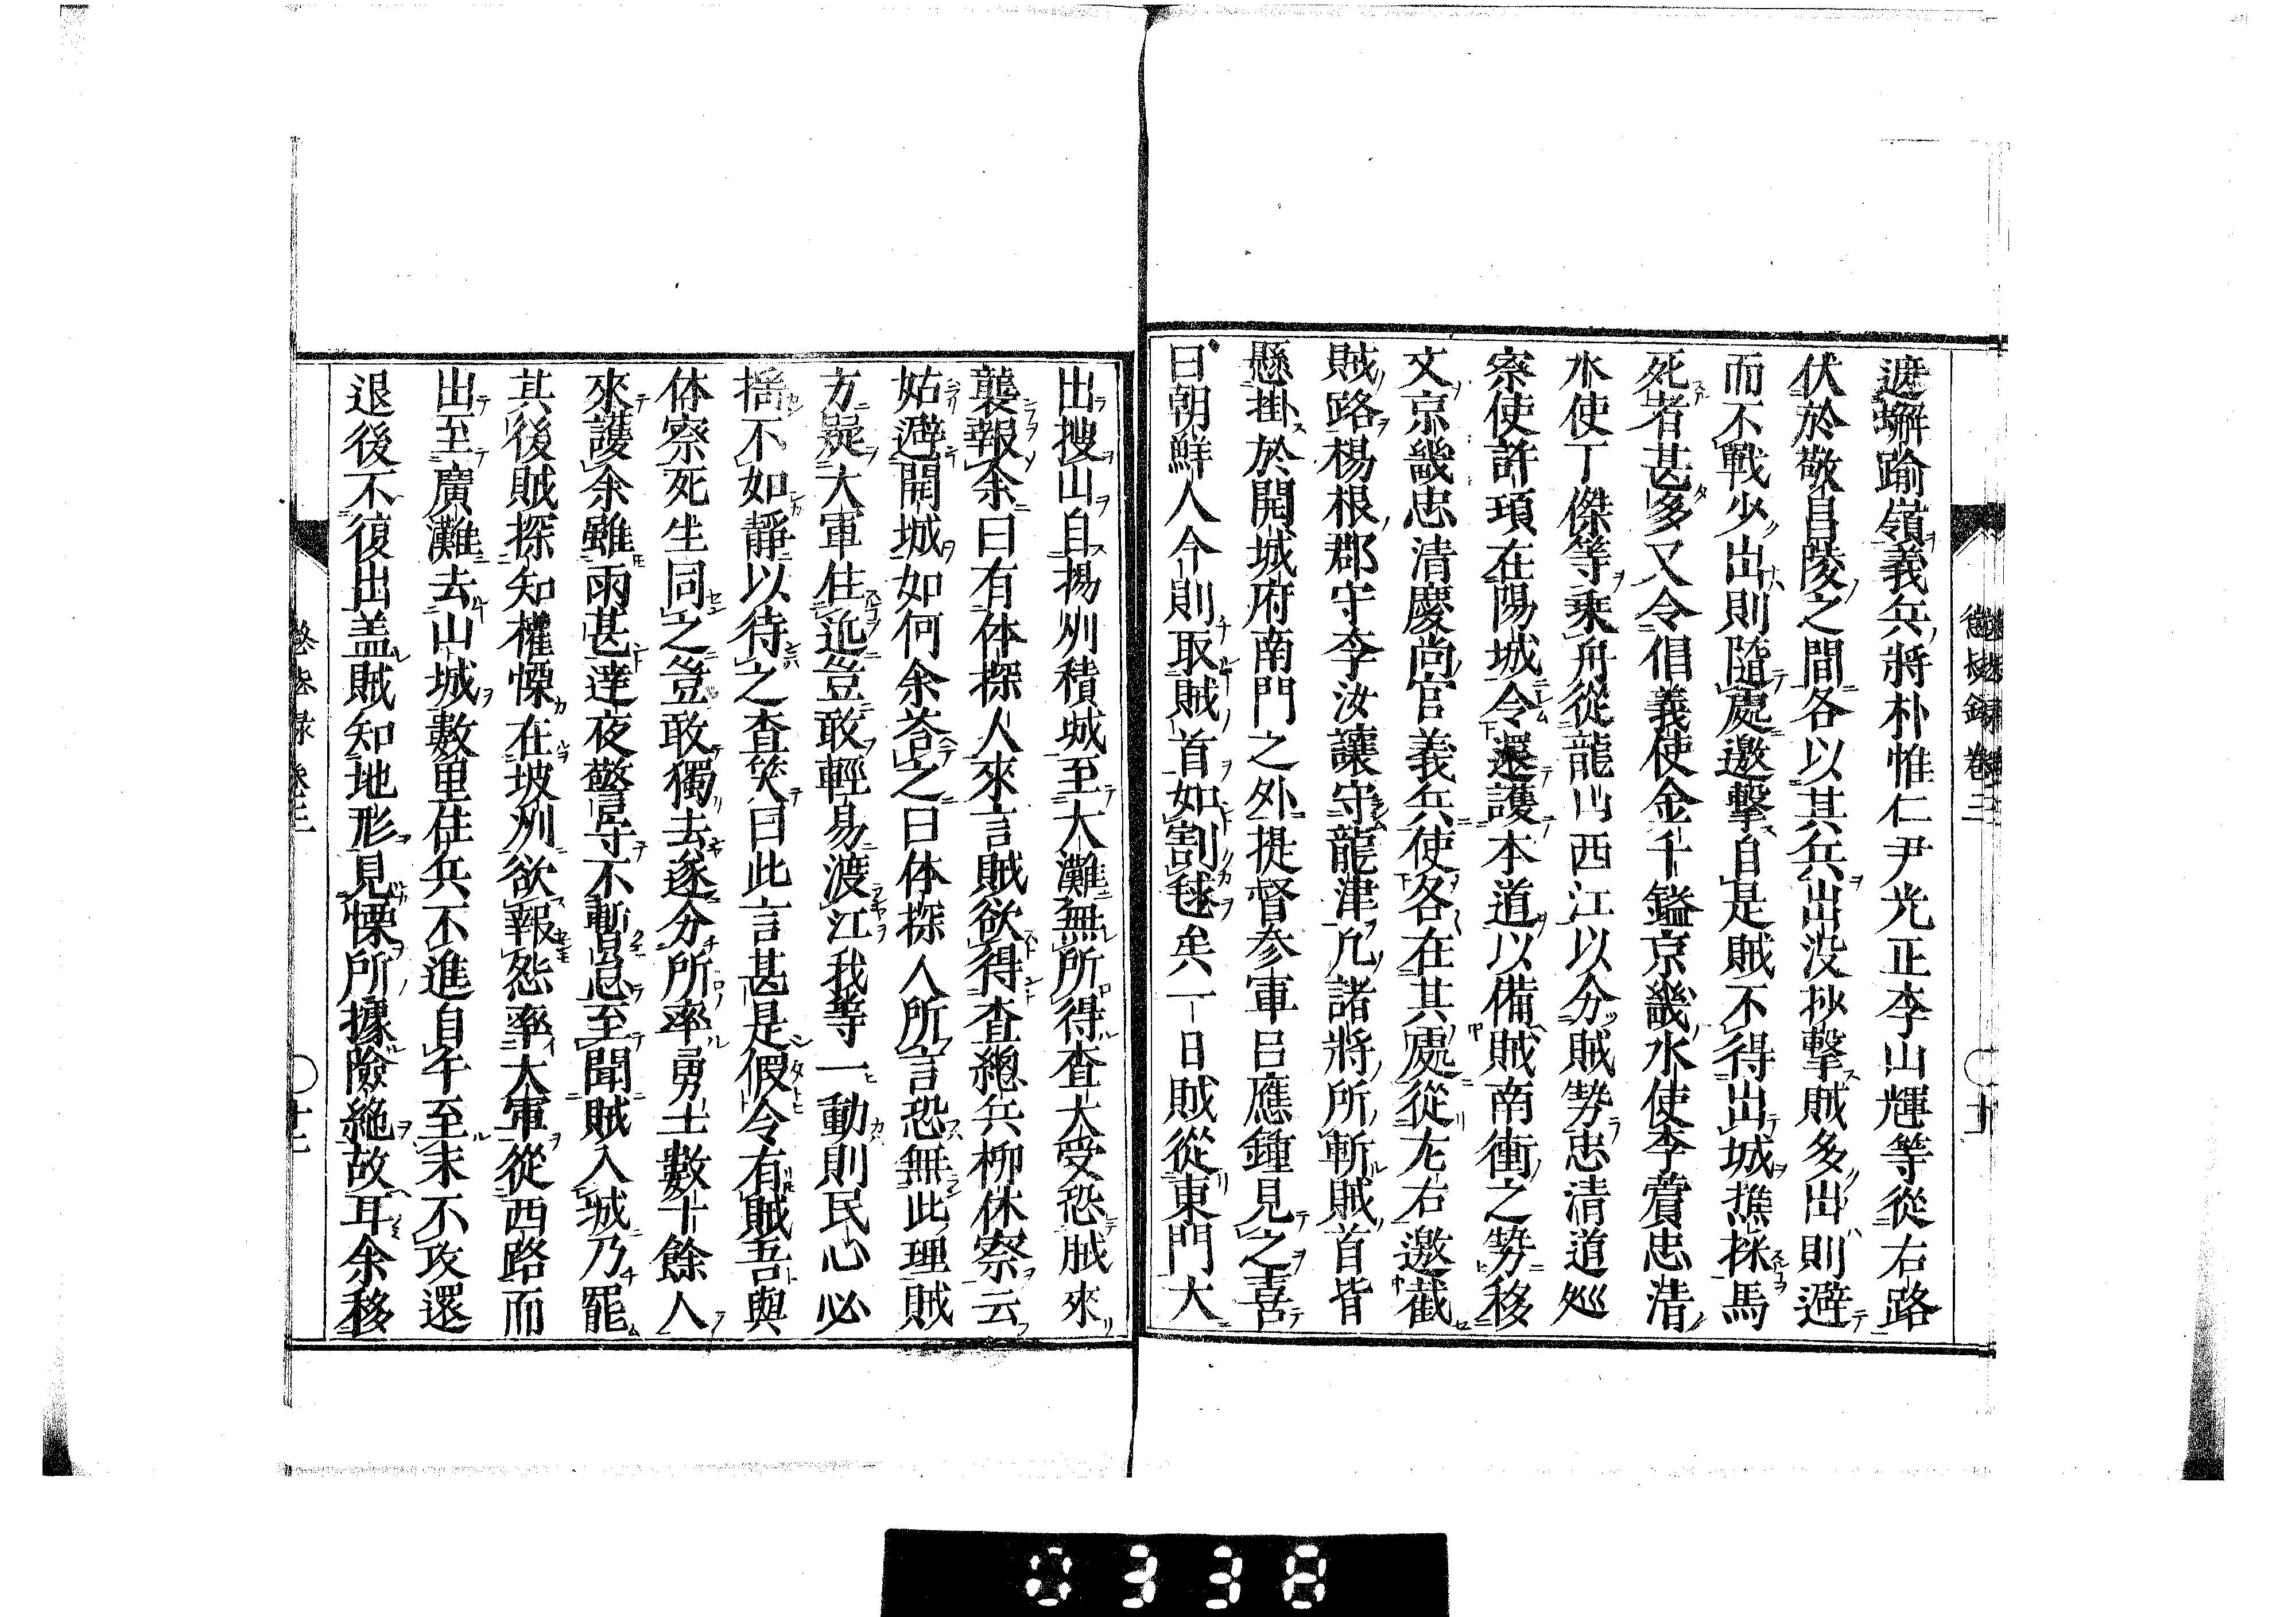 遮蠏踰嶺義兵將朴惟仁尹光正李山輝等從右路
伏於敬昌陵之間各以其兵出没抄擊賊多出則避
而不戰少出則隨處邀擊自是賊不得出城樵採馬
死者甚多又令倡義使金千鎰京畿水使李薲忠清
水使丁傑等乗舟從龍山西江以分賊勢忠清道巡
察使許頊在陽城令還護本道以備賊南衝之勢移
文京畿忠清慶尚官義兵使各在其處從左右邀截
賊路楊根郡守李汝讓守龍津凢諸將所斬賊首皆
懸掛於開城府南門之外提督参軍呂應鍾見之喜
曰朝鮮人今則取賊首如割毬矣一日賊從東門大
出搜山自楊州積城至大灘無所得査大受恐賊來
襲報余曰有体探人來言賊欲得査總兵柳体察云
姑避開城如何余荅之曰体探人所言恐無此理賊
方疑大軍住近豈敢輕易渡江我等一動則民心必
揺不如靜以待之査笑曰此言甚是假令有賊吾與
体察死生同之豈敢獨去遂分所率勇士數十餘人
來護余雖雨甚達夜警守不暫怠至聞賊入城乃罷
其後賊探知權慄在坡州欲報怨率大軍從西路而
出至廣灘去山城數里住兵不進自午至未不攻還
退後不復出盖賊知地形見慄所據險絶故耳余移
懲毖録 卷三
十二
0338